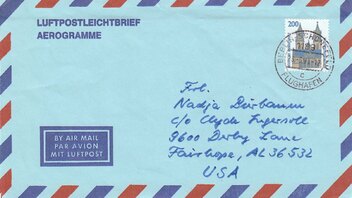 LUFTPOSTLEICHTBRIEF
AEROGRAMME
200
FLUGHAFEN
c
Frl.
Nadja Dürbaum
c/o Clyde Ingersoll
9600 Derby Lane
Fairhope, AL 36532
USA
BY AIR MAIL
PAR AVION
MIT LUFTPOST